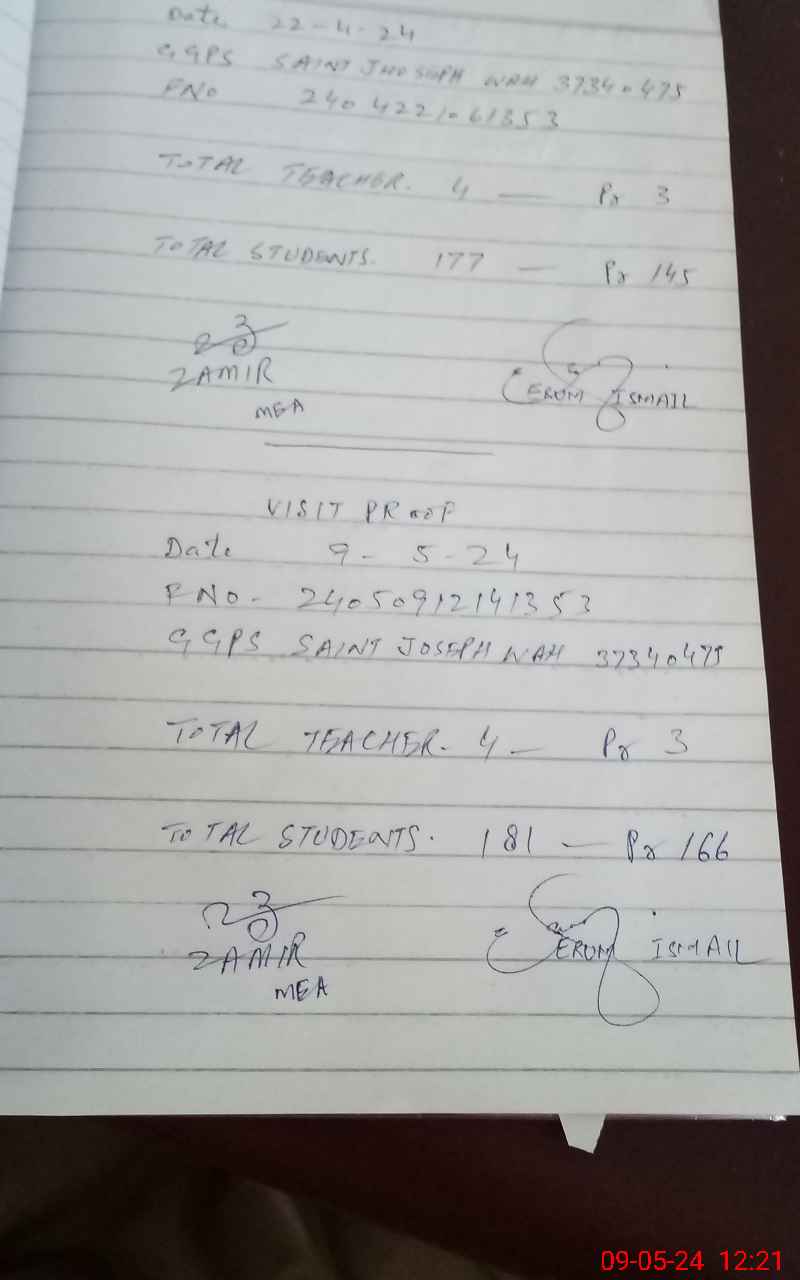 Date 22-4-24
GGPS SAINT JHOSEPH WAH 37340475
FNO 2404221061353
TOTAL TEACHER. 4 — Pr 3
TOTAL STUDENTS. 177 — Pr 145
ZAMIR
MEA
ERUM ISMAIL
VISIT PROOF
Date 9-5-24
FNO- 24050912141353
GGPS SAINT JOSEPH WAH 37340475
TOTAL TEACHER. 4 — Pr 3
TOTAL STUDENTS. 181 — Pr 166
ZAMIR
MEA
ERUM ISMAIL
09-05-24 12:21